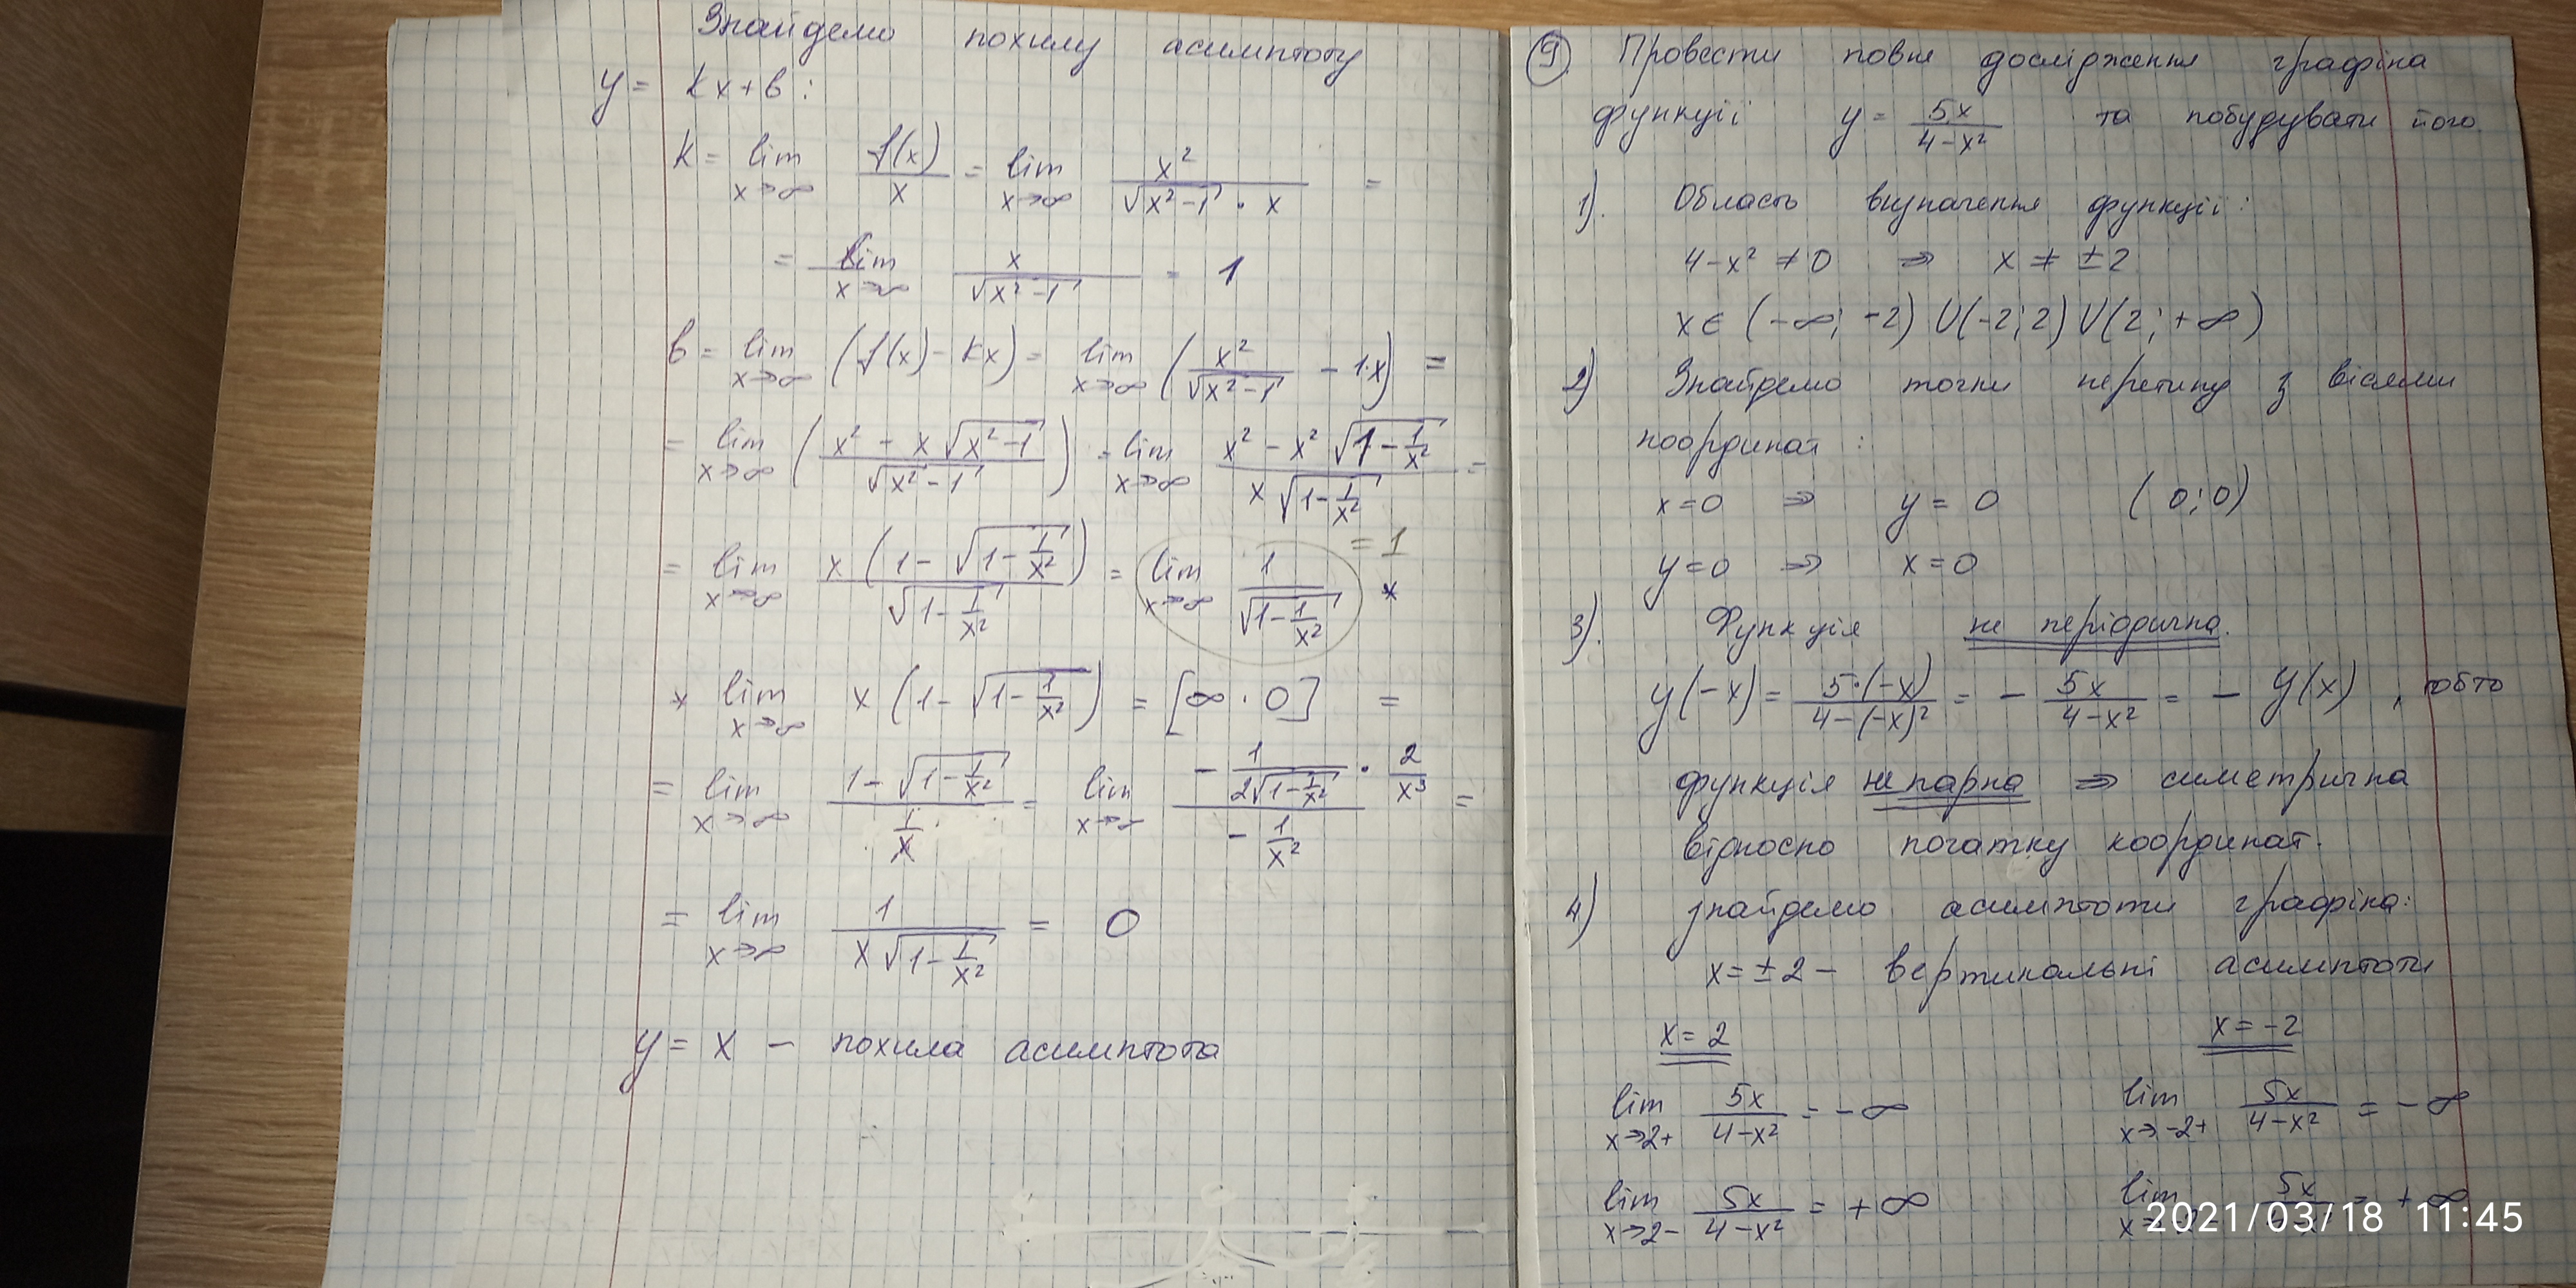 Знайдемо похилу асимптоту
y = kx + b :
k = lim x→∞ f(x)/x = lim x→∞ x²/(√(x²-1) · x) =
= lim x→∞ x/√(x²-1) = 1
b = lim x→∞ (f(x) - kx) = lim x→∞ (x²/√(x²-1) - 1·x) =
= lim x→∞ ((x² - x√(x²-1))/√(x²-1)) = lim x→∞ (x² - x²√(1-1/x²))/(x√(1-1/x²)) =
= lim x→∞ x(1-√(1-1/x²))/√(1-1/x²) = lim x→∞ 1/√(1-1/x²) = 1 ×
× lim x→∞ x(1-√(1-1/x²)) = [∞ · 0] =
= lim x→∞ (1-√(1-1/x²))/(1/x) = lim x→∞ (-1/(2√(1-1/x²)) · 2/x³)/(-1/x²) =
= lim x→∞ 1/(x√(1-1/x²)) = 0
y = x - похила асимптота
9. Провести повне дослідження графіка
функції y = 5x/(4-x²) та побудувати його.
1). Область визначення функції :
4-x² ≠ 0 ⇒ x ≠ ±2
x ∈ (-∞; -2) U (-2; 2) U (2; +∞)
2) Знайдемо точки перетину з вісями
координат :
x=0 ⇒ y = 0 (0; 0)
y=0 ⇒ x=0
3). Функція не періодична.
y(-x) = 5·(-x)/(4-(-x)²) = - 5x/(4-x²) = - y(x), тобто
функція не парна ⇒ симетрична
відносно початку координат.
4) знайдемо асимптоти графіка:
x = ±2 - вертикальні асимптоти
x = 2 x = -2
lim x→2+ 5x/(4-x²) = -∞ lim x→-2+ 5x/(4-x²) = -∞
lim x→2- 5x/(4-x²) = +∞ lim x→-2- 5x/(4-x²) = +∞
2021/03/18 11:45